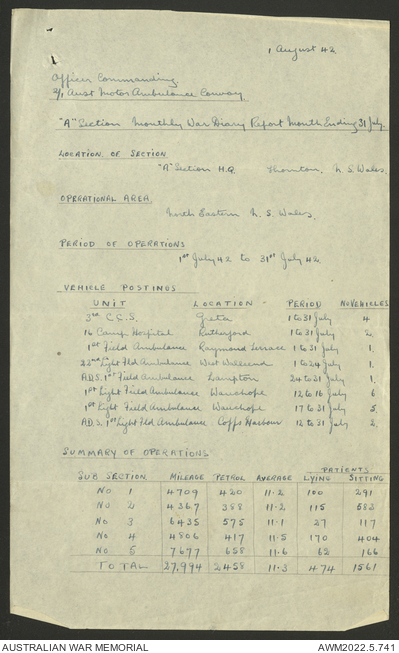 1 August 42
Officer Commanding
2/1 Aust Motor Ambulance Convoy
"A" Section Monthly War Diary Report Month Ending 31 July
LOCATION OF SECTION
"A" Section H.Q. Thornton, N. S. Wales.
OPERATIONAL AREA
North Eastern N. S. Wales.
PERIOD OF OPERATIONS
1st July 42 to 31st July 42.
VEHICLE POSTINGS
UNIT LOCATION PERIOD NO VEHICLES
3rd C.C.S. Greta 1 to 31 July 4
16 Camp Hospital Rutherford 1 to 31 July 2.
1st Field Ambulance Raymond Terrace 1 to 31 July 1.
22nd Light Fld Ambulance West Wallsend 1 to 24 July 1.
A.D.S. 1st Field Ambulance Lampton 24 to 31 July 1.
1st Light Field Ambulance Wauchope 12 to 16 July 6
1st Light Field Ambulance Wauchope 17 to 31 July 5.
A.D.S. 1st Light Fld Ambulance Coffs Harbour 12 to 31 July 2.
SUMMARY OF OPERATIONS
PATIENTS
SUB SECTION MILEAGE PETROL AVERAGE LYING SITTING
No 1 4709 420 11.2 100 291
No 2 4367 388 11.2 115 583
No 3 6435 575 11.1 27 117
No 4 4806 417 11.5 170 404
No 5 7677 658 11.6 62 166
TOTAL 27,994 2458 11.3 474 1561
AUSTRALIAN WAR MEMORIAL AWM2022.5.741